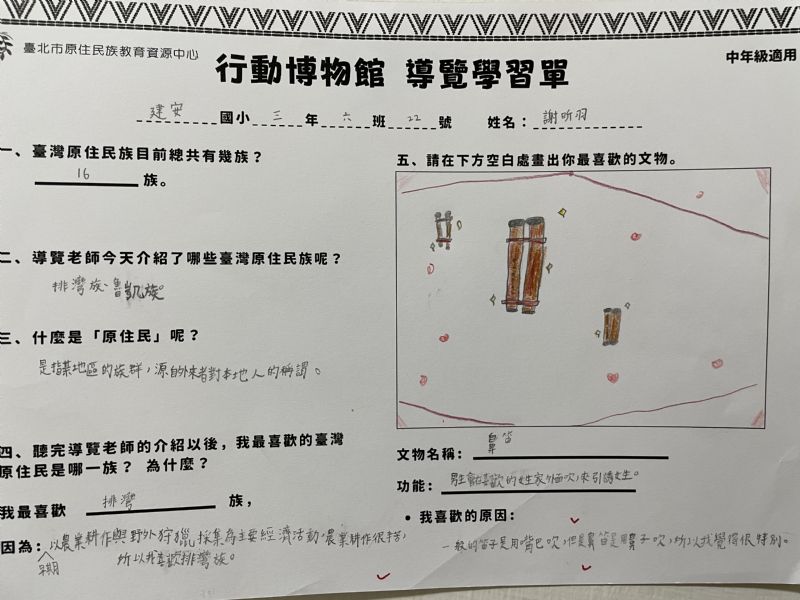 臺北市原住民族教育資源中心
行動博物館 導覽學習單
中年級適用
建安國小三年六班22號 姓名：謝昕羽
一、臺灣原住民族目前總共有幾族？
16族。
二、導覽老師今天介紹了哪些臺灣原住民族呢？
排灣族、魯凱族。
三、什麼是「原住民」呢？
是指某地區的族群，源自外來者對本地人的稱謂。
四、聽完導覽老師的介紹以後，我最喜歡的臺灣
原住民是哪一族？ 為什麼？
我最喜歡 排灣 族，
因為：早期以農業耕作與野外狩獵、採集為主要經濟活動，農業耕作很辛苦，
所以我喜歡排灣族。
五、請在下方空白處畫出你最喜歡的文物。
文物名稱：鼻笛
功能：男生會在喜歡的女生家外面吹，來引誘女生。
• 我喜歡的原因：
一般的笛子是用嘴巴吹，但是鼻笛是用鼻子吹，所以我覺得很特別。